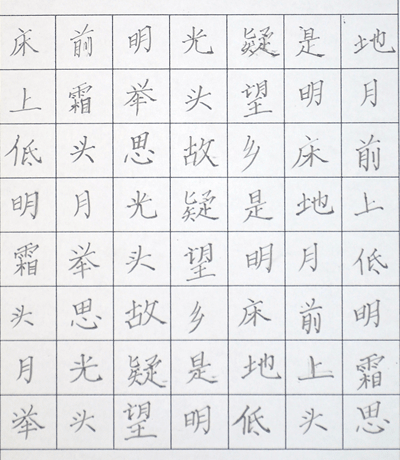 床前明光疑是地
上霜举头望明月
低头思故乡床前
明月光疑是地上
霜举头望明月低
头思故乡床前明
月光疑是地上霜
举头望明低头思